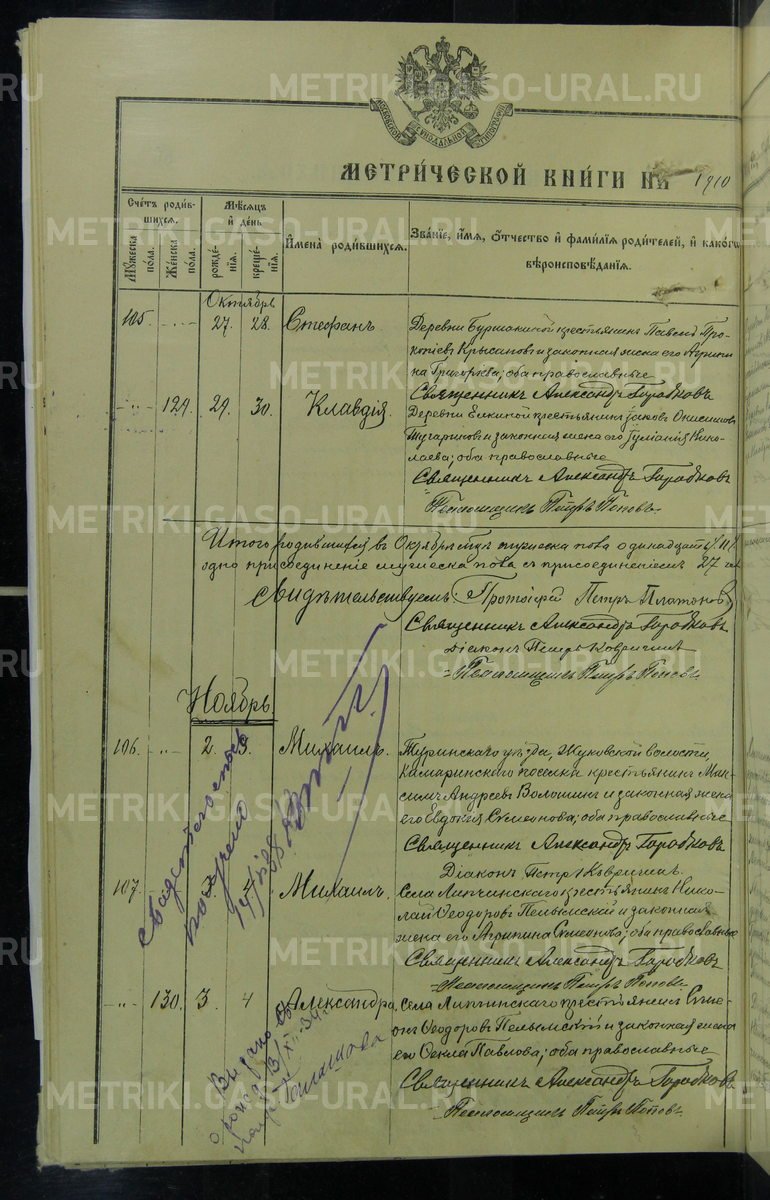 МЕТРИ́ЧЕСКОЙ КНИ́ГИ НА 1910
Счетъ родившихся.
Мужеска пола.
Женска пола.
Мѣсяцъ и день
рожденія.
крещенія.
Имена родившихся.
Званіе, имя, отчество и фамилія родителей, и какого
вѣроисповѣданія.
Октябрь
105. 27. 28. Стефанъ.
крестьянинъ Павелъ Про-
копіевъ Крысановъ и законная жена его Агрипи-
на Григоріева; оба православные
Священникъ Александръ Горбковъ
129. 29. 30. Клавдія.
Деревни Елкиной крестьянинъ Іаковъ Онисимовъ
Тугариновъ и законная жена его Іуліанія Нико-
лаева; оба православные
Священникъ Александръ Горбковъ
Псаломщикъ Петръ Поповъ.
Итого родившихся въ Октябрѣ мужеска пола одинадцать
одно присоединеніе мужеска пола съ присоединеніемъ 27
Свидѣтельствуемъ: Протоіерей Петръ Платоновъ
Священникъ Александръ Горбковъ
Діаконъ Петръ
Псаломщикъ Петръ Поповъ
Ноябрь
106. 2. 3. Михаилъ.
Туринскаго уѣзда, Жуковской волости,
Камаринскаго поселка крестьянинъ Мак-
симъ Андреевъ Волошинъ и законная жена
его Евдокія Симеонова; оба православные
Священникъ Александръ Горбковъ
Діаконъ Петръ
107. 3. 4. Михаилъ.
Села Липчинскаго крестьянинъ Нико-
лай Ѳеодоровъ Пелымскій и законная
жена его Агрипина Симеонова; оба православные
Священникъ Александръ Горбковъ
Псаломщикъ Петръ Поповъ
130. 3. 4 Александра,
Села Липчинскаго крестьянинъ Симе-
онъ Ѳеодоровъ Пелымскій и законная жена
его Ѳекла Павлова; оба православные
Священникъ Александръ Горбковъ
Псаломщикъ Петръ Поповъ
свидетельство
получено
Выдано
METRIKI.GASO-URAL.RU